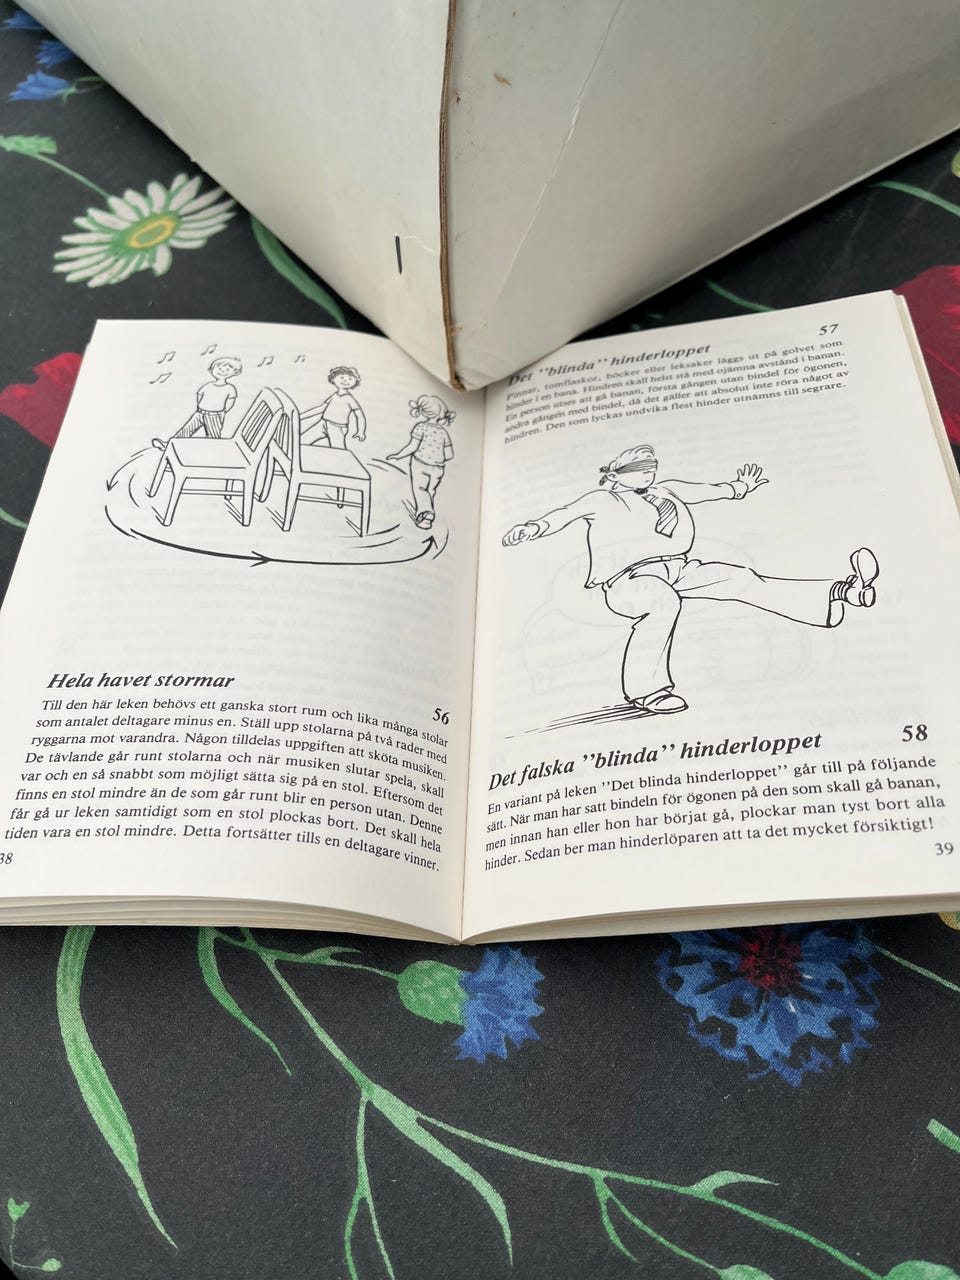 Hela havet stormar
56
Till den här leken behövs ett ganska stort rum och lika många stolar
som antalet deltagare minus en. Ställ upp stolarna på två rader med
ryggarna mot varandra. Någon tilldelas uppgiften att sköta musiken.
De tävlande går runt stolarna och när musiken slutar spela, skall
var och en så snabbt som möjligt sätta sig på en stol. Eftersom det
finns en stol mindre än de som går runt blir en person utan. Denne
får gå ur leken samtidigt som en stol plockas bort. Det skall hela
tiden vara en stol mindre. Detta fortsätter tills en deltagare vinner.
38
57
Det ''blinda'' hinderloppet
Pinnar, tomflaskor, böcker eller leksaker läggs ut på golvet som
hinder i en bana. Hindren skall helst stå med ojämna avstånd i banan.
En person utses att gå banan, första gången utan bindel för ögonen,
andra gången med bindel, då det gäller att absolut inte röra något av
hindren. Den som lyckas undvika flest hinder utnämns till segrare.
58
Det falska ''blinda'' hinderloppet
En variant på leken ''Det blinda hinderloppet'' går till på följande
sätt. När man har satt bindeln för ögonen på den som skall gå banan,
men innan han eller hon har börjat gå, plockar man tyst bort alla
hinder. Sedan ber man hinderlöparen att ta det mycket försiktigt!
39